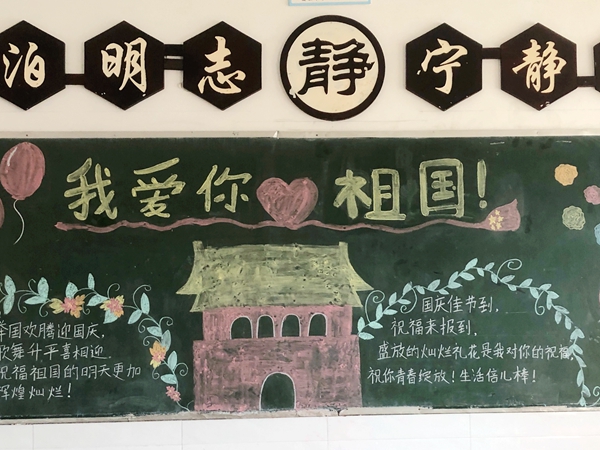 泊明志 静 宁静
我爱你 祖国!
举国欢腾迎国庆,
歌舞升平喜相迎
祝福祖国的明天更加
辉煌灿烂!
国庆佳节到,
祝福来报到,
盛放的灿烂礼花是我对你的祝福
祝你青春绽放!生活倍儿棒!